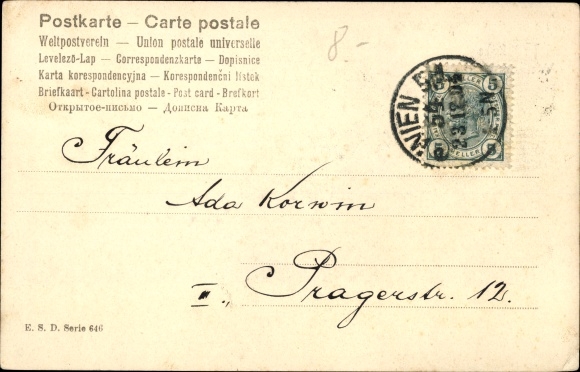 Postkarte — Carte postale
Weltpostverein — Union postale universelle
Levelező-Lap — Correspondenzkarte — Dopisnice
Karta korespondencyjna — Korespondenční lístek
Briefkaart - Cartolina postale - Post card - Brefkort
Открытое-письмо — Дописна Карта
8.-
WIEN
23.12.04
5 5
HELLER
5 5
Fräulein
Ada Korwin
II., Pragerstr. 12.
E. S. D. Serie 646